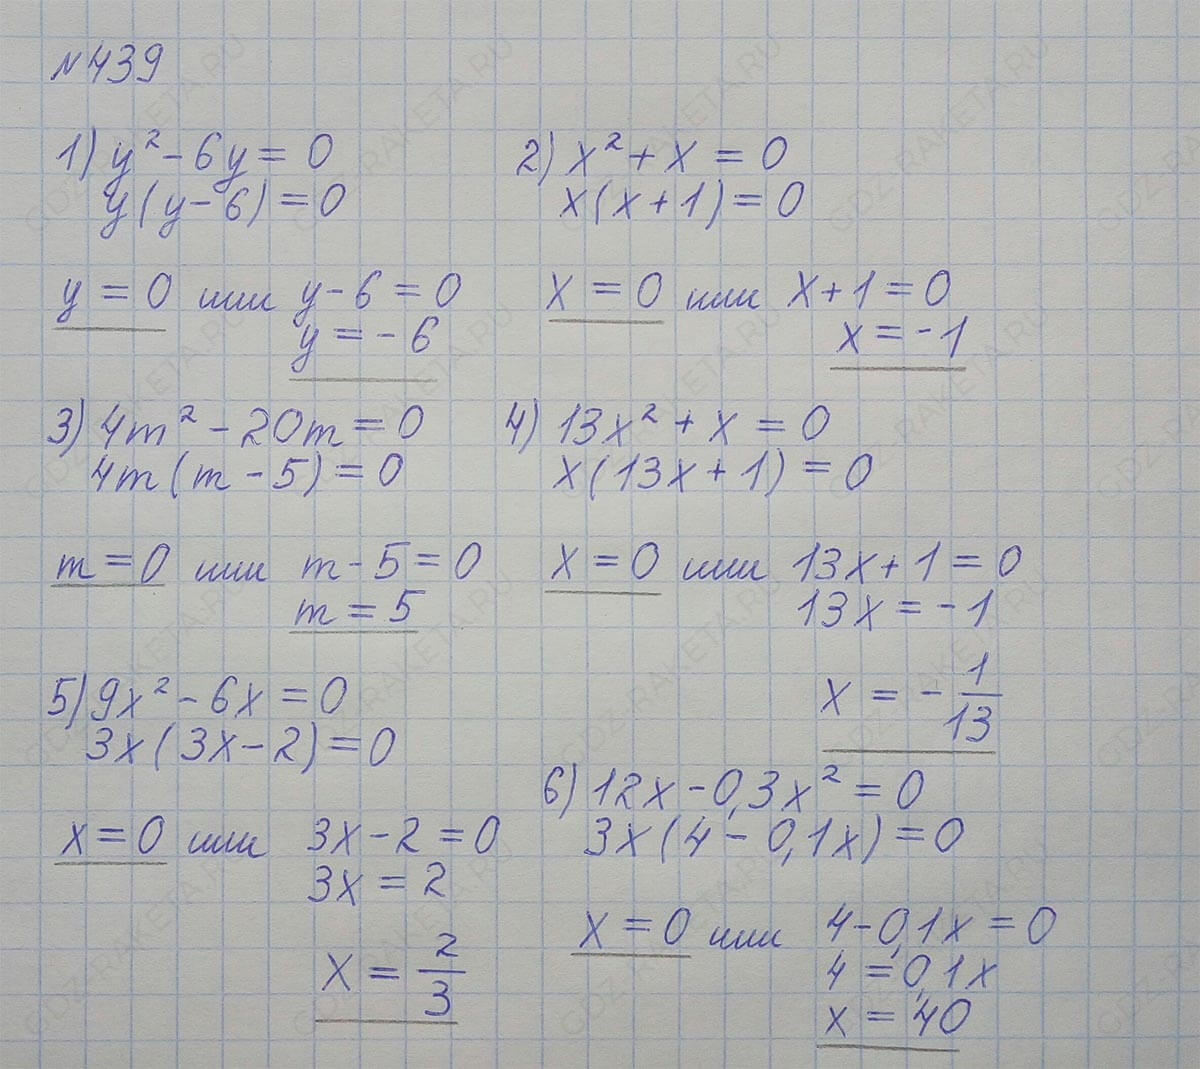 №439
1) y² - 6y = 0
y(y - 6) = 0
y = 0 или y - 6 = 0
y = - 6
2) x² + x = 0
x(x + 1) = 0
x = 0 или x + 1 = 0
x = - 1
3) 4m² - 20m = 0
4m(m - 5) = 0
m = 0 или m - 5 = 0
m = 5
4) 13x² + x = 0
x(13x + 1) = 0
x = 0 или 13x + 1 = 0
13x = - 1
x = - 1/13
5) 9x² - 6x = 0
3x(3x - 2) = 0
x = 0 или 3x - 2 = 0
3x = 2
x = 2/3
6) 12x - 0,3x² = 0
3x(4 - 0,1x) = 0
x = 0 или 4 - 0,1x = 0
4 = 0,1x
x = 40
GDZ-RAKETA.RU